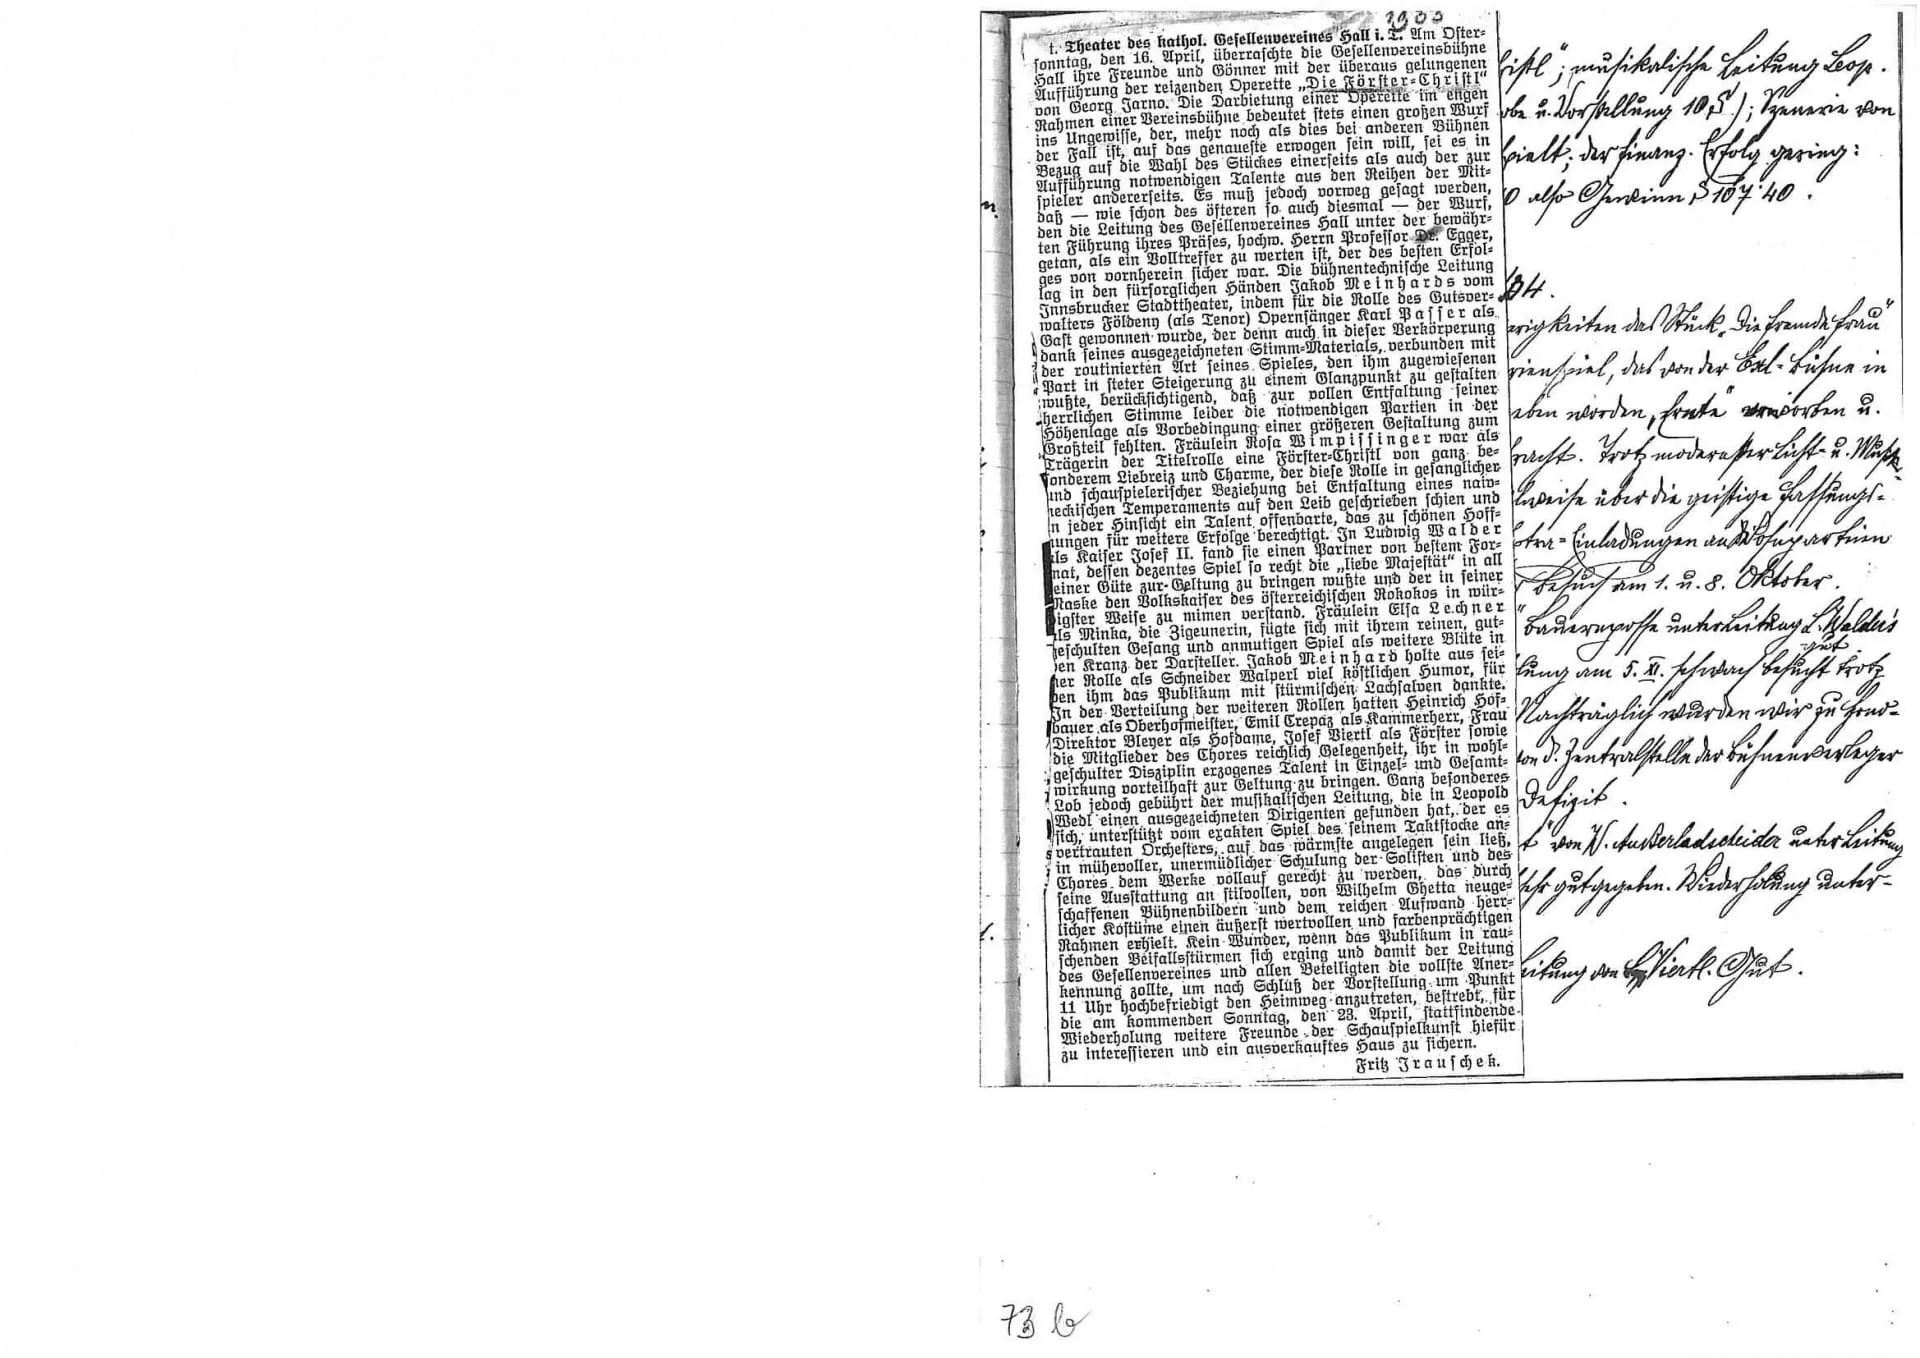 1933
t. Theater des kathol. Gesellenvereines Hall i. T. Am Oster-
sonntag, den 16. April, überraschte die Gesellenvereinsbühne
Hall ihre Freunde und Gönner mit der überaus gelungenen
Aufführung der reizenden Operette „Die Förster-Christl“
von Georg Jarno. Die Darbietung einer Operette im engen
Rahmen einer Vereinsbühne bedeutet stets einen großen Wurf
ins Ungewisse, der, mehr noch als dies bei anderen Bühnen
der Fall ist, auf das genaueste erwogen sein will, sei es in
Bezug auf die Wahl des Stückes einerseits als auch der zur
Aufführung notwendigen Talente aus den Reihen der Mit-
spieler andererseits. Es muß jedoch vorweg gesagt werden,
daß — wie schon des öfteren so auch diesmal — der Wurf,
den die Leitung des Gesellenvereines Hall unter der bewähr-
ten Führung ihres Präses, hochw. Herrn Professor Dr. Egger,
getan, als ein Volltreffer zu werten ist, der des besten Erfol-
ges von vornherein sicher war. Die bühnentechnische Leitung
lag in den fürsorglichen Händen Jakob Meinhards vom
Innsbrucker Stadttheater, indem für die Rolle des Gutsver-
walters Földeny (als Tenor) Opernsänger Karl Passer als
Gast gewonnen wurde, der denn auch in dieser Verkörperung
dank seines ausgezeichneten Stimm-Materials, verbunden mit
der routinierten Art seines Spieles, den ihm zugewiesenen
Part in steter Steigerung zu einem Glanzpunkt zu gestalten
wußte, berücksichtigend, daß zur vollen Entfaltung seiner
herrlichen Stimme leider die notwendigen Partien in der
Höhenlage als Vorbedingung einer größeren Gestaltung zum
Großteil fehlten. Fräulein Rosa Wimpissinger war als
Trägerin der Titelrolle eine Förster-Christl von ganz be-
sonderem Liebreiz und Charme, der diese Rolle in gesanglicher
und schauspielerischer Beziehung bei Entfaltung eines naiv-
neckischen Temperaments auf den Leib geschrieben schien und
in jeder Hinsicht ein Talent offenbarte, das zu schönen Hoff-
nungen für weitere Erfolge berechtigt. In Ludwig Walder
als Kaiser Josef II. fand sie einen Partner von bestem For-
mat, dessen dezentes Spiel so recht die „liebe Majestät“ in all
seiner Güte zur Geltung zu bringen wußte und der in seiner
Maske den Volkskaiser des österreichischen Rokokos in wür-
digster Weise zu mimen verstand. Fräulein Elsa Lechner
als Minka, die Zigeunerin, fügte sich mit ihrem reinen, gut-
geschulten Gesang und anmutigen Spiel als weitere Blüte in
den Kranz der Darsteller. Jakob Meinhard holte aus sei-
ner Rolle als Schneider Walperl viel köstlichen Humor, für
den ihm das Publikum mit stürmischen Lachsalven dankte.
In der Verteilung der weiteren Rollen hatten Heinrich Hof-
bauer als Oberhofmeister, Emil Crepaz als Kammerherr, Frau
Direktor Bleyer als Hofdame, Josef Viertl als Förster sowie
die Mitglieder des Chores reichlich Gelegenheit, ihr in wohl-
geschulter Disziplin erzogenes Talent in Einzel- und Gesamt-
wirkung vorteilhaft zur Geltung zu bringen. Ganz besonderes
Lob jedoch gebührt der musikalischen Leitung, die in Leopold
Wedl einen ausgezeichneten Dirigenten gefunden hat, der es
sich, unterstützt vom exakten Spiel des seinem Taktstocke an-
vertrauten Orchesters, auf das wärmste angelegen sein ließ,
in mühevoller, unermüdlicher Schulung der Solisten und des
Chores dem Werke vollauf gerecht zu werden, das durch
seine Ausstattung an stilvollen, von Wilhelm Ghetta neuge-
schaffenen Bühnenbildern und dem reichen Aufwand herr-
licher Kostüme einen äußerst wertvollen und farbenprächtigen
Rahmen erhielt. Kein Wunder, wenn das Publikum in rau-
schenden Beifallsstürmen sich erging und damit der Leitung
des Gesellenvereines und allen Beteiligten die vollste Aner-
kennung zollte, um nach Schluß der Vorstellung um Punkt
11 Uhr hochbefriedigt den Heimweg anzutreten, bestrebt, für
die am kommenden Sonntag, den 23. April, stattfindende
Wiederholung weitere Freunde der Schauspielkunst hiefür
zu interessieren und ein ausverkauftes Haus zu sichern.
Fritz Irauschek.
istl“; musikalische Leitung Leop.
obe u. Vorstellung 10 S); Szenerie von
spielt; der finanz. Erfolg gering:
0 also Gewinn S 107·40.
34.
erigkeiten das Stück „Die fremde Frau“
rienspiel, das von der Exl-Bühne in
eben worden „Ernte“ erworben u.
racht. Trotz modernster Licht- u. Musik-
lweise über die geistige Fassungs-
xtra-Einladungen an
Besuch am 1. u. 8. Oktober.
“ Bauernposse unter Leitung L. Walder's
gut
lung am 5. XI. schwach besucht trotz
Nachträglich wurden wir zu Hono-
von d. Zentralstelle der Bühnenverleger
Defizit.
t“ von N. Außerladscheider unter Leitung
sehr gut gegeben. Wiederholung unter-
eitung von Viertl. Gut.
73 b